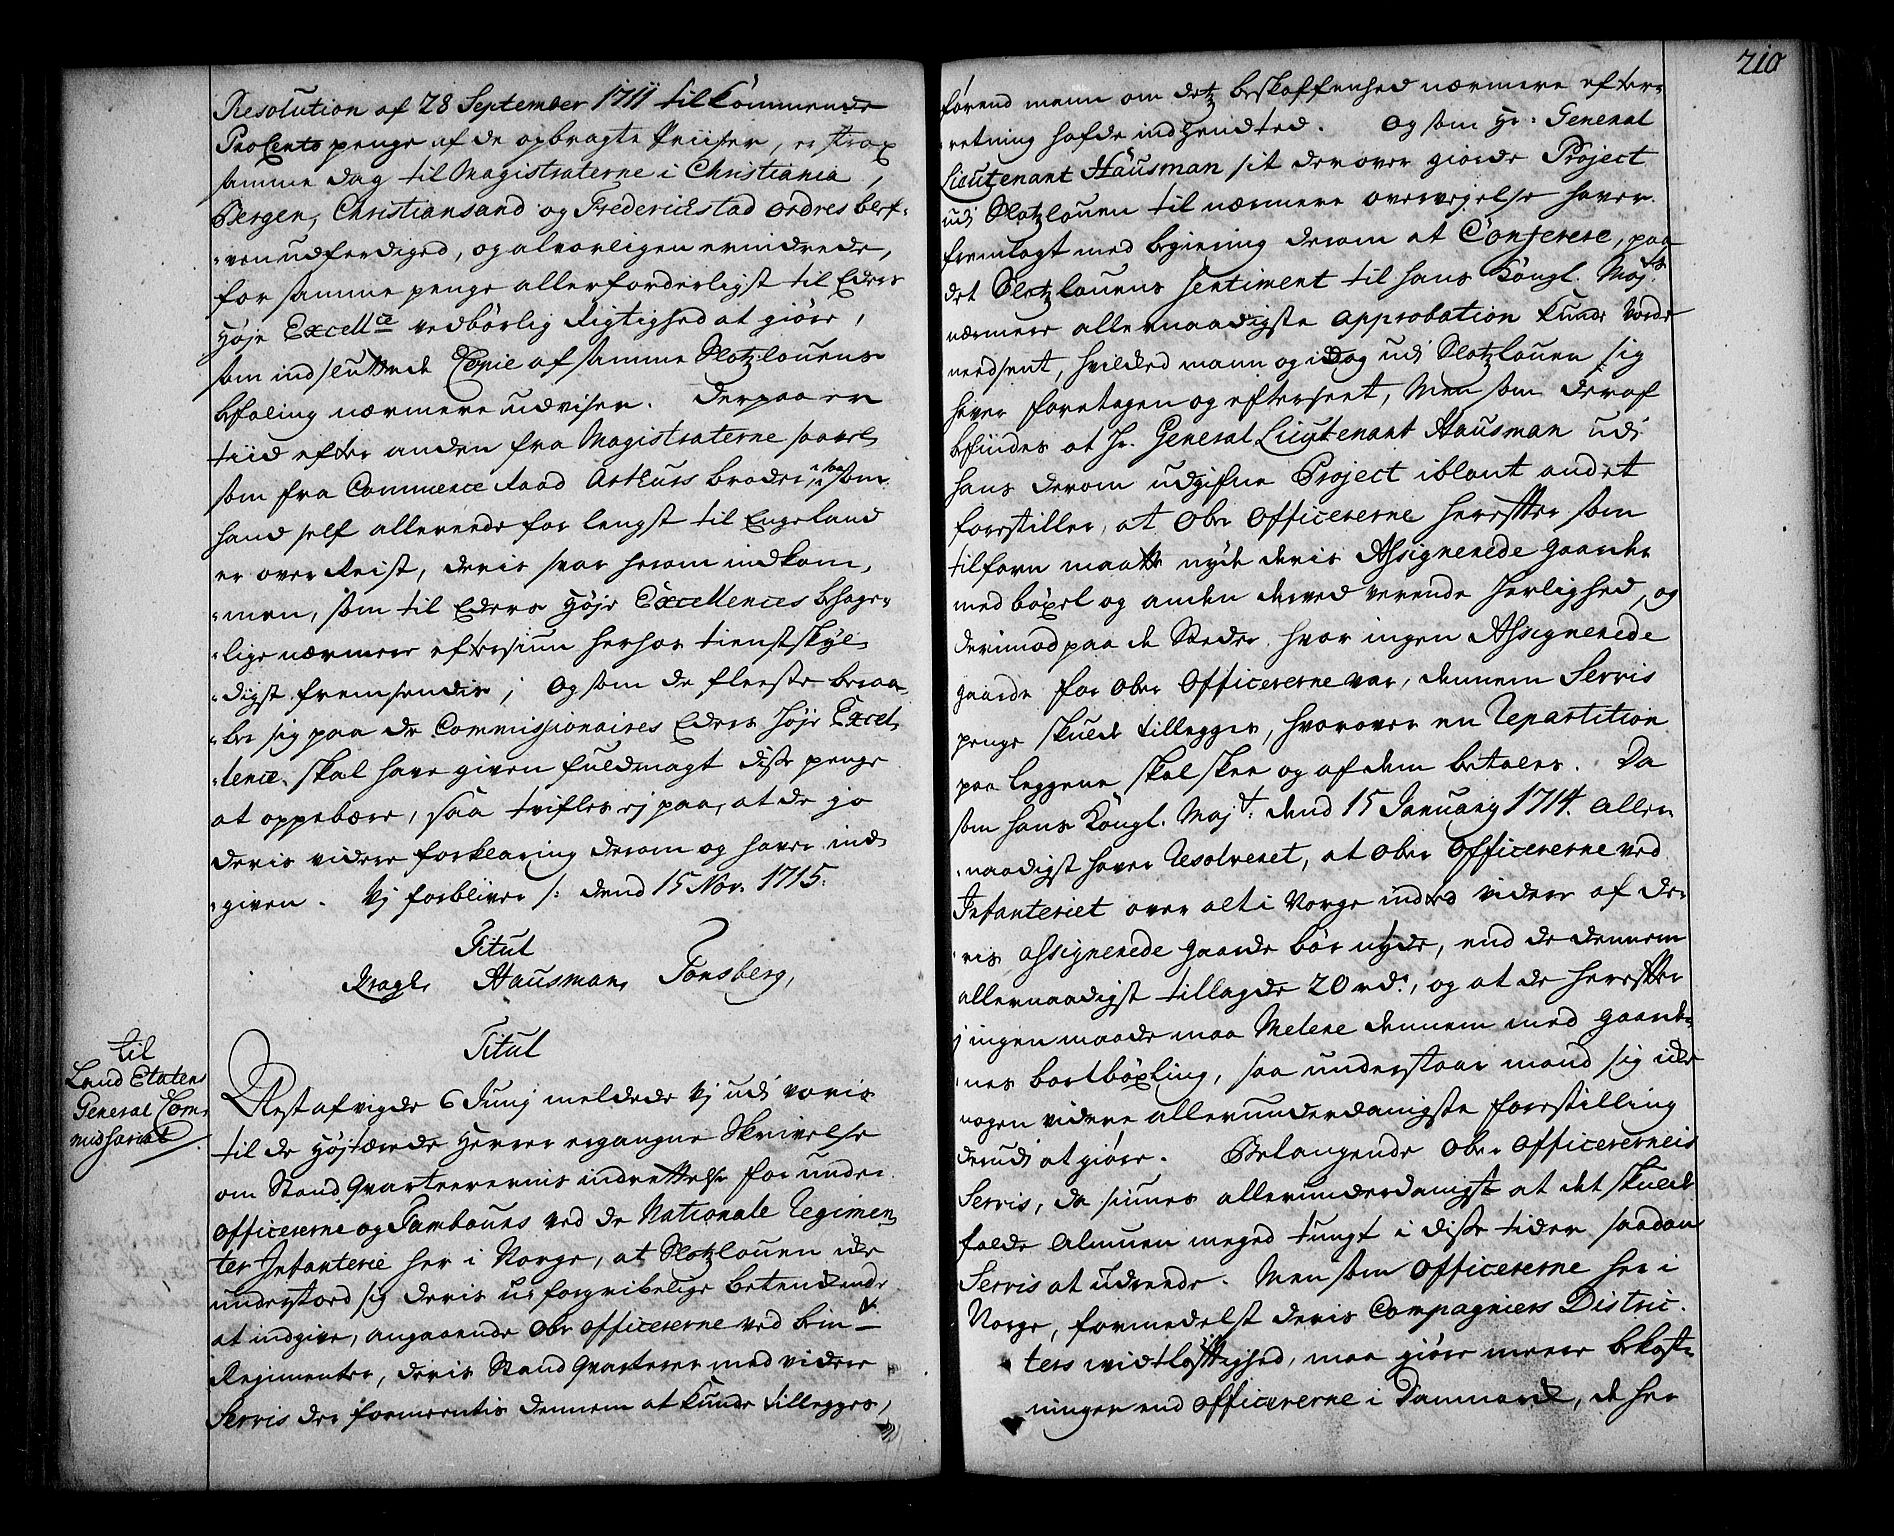 Resolution af 28 September 1711 tilkommende
ProCento penge af de opbragte Priiser, er strax
samme dag til Magistraterne i Christiania,
Bergen, Christiansand og Frederichstad ordres blef-
-ven udferdiged, og alvorligen erindrede,
for samme penge allerforderligst til Eders
Høje Excellce vedbörlig Rigtighed at giøre,
som indsluttede Copie af samme Slotzlouens
befaling nærmere udviser. Derpaa er
tiid efter anden fra Magistraterne saavel
som fra Commerce Raad Arthurs broder, /: saasom
hand self allereede for lengst til Engeland
er over Reist, deris svar herom indkom,
-men, som til Eders Høje Excellences behage-
-lige nærmere eftersiun herhos tienstskyl-
-digst fremsendis; Og som de fleeste beraa-
-ber sig paa de Commissionaires Eders Høje Excel-
-lence skal have given fuldmagt disse penge
at oppebære, saa tvifles ej paa, at de jo
deris videre forklaring derom og haver ind-
-given. Vj forbliver /: dend 15 Nov. 1715.
Titul
Kragh, Hausman, Tonsberg,
til
Land Etatens
General Com-
missariat
Titul
Nest afvigde 6 Junij meldede Vj udi voris
til de Højtærede Herrer ergangne Skrivelse
om Stand Qvarteerernis indrettelse for under
officererne og Tambours ved de Nationale Regimen-
ter Infanterie her i Norge, at Slotzlouen icke
understoed sig deris uforgribelige betenckende
at indgive, angaaende Ober officererne ved bem.te
Regimenter, deris Stand Qvarterer med videre
Servis der formeentis dennem at kunde tillegges,
210
førend mann om detz beskaffenhed nærmere efter-
-retning hafde indhendted. Og som Hr: General
Lieutenant Hausman sit derover giorde Project
udi Slotzlouen til nærmere overvejelse haver
fremlagt med begiering derom at Conferere, paa
det Slotzlouens sentiment til hans Kongl. Maj.ts
nærmere allernaadigste approbation kunde vorde
needsent, hvilcked mann og i dag udi Slotzlouen sig
haver foretagen og efterseet, Men som deraf
befindes at Hr. General Lieutenant Hausman udi
hans derom udgifne Project iblant andet
forestiller, at Ober officererne herefter som
tilforn maatte nyde deris Assignerede gaarde
med böxel og anden derved verende herlighed, og
derimod paa de Steder, hvor ingen Assignerede
gaarde for Ober Officererne var, dennem Servis
penge skulde tillegges, hvorover en Repartition
paa leggene skal skee og af dem betales. Da
som hans Kongl. Maj.t dend 15 Januarij 1714. aller-
-naadigst haver Resolveret, at Ober Officererne ved
Infanteriet over alt i Norge inted videre af de-
-ris assignerede gaarde bör nyde, end de dennem
allernaadigst tillagde 20 rd.r, og at de herefter
j ingen maade maa Melere dennem med gaarde-
-nes bortböxling, saa understaar mand sig icke
nogen videre allerunderdanigste forestilling
derudi at giøre. Belangende Ober officererneis
Servis, da siunes allerunderdanigst at det skulde
falde Almuen meget tungt i disse tider saadan
Servis at udreede. Men som officererne her i
Norge, formedelst deris Compagniers Distric-
ters widtløftighed, maa giøre meere bekost-
ninger end officererne i Danmarck, de her